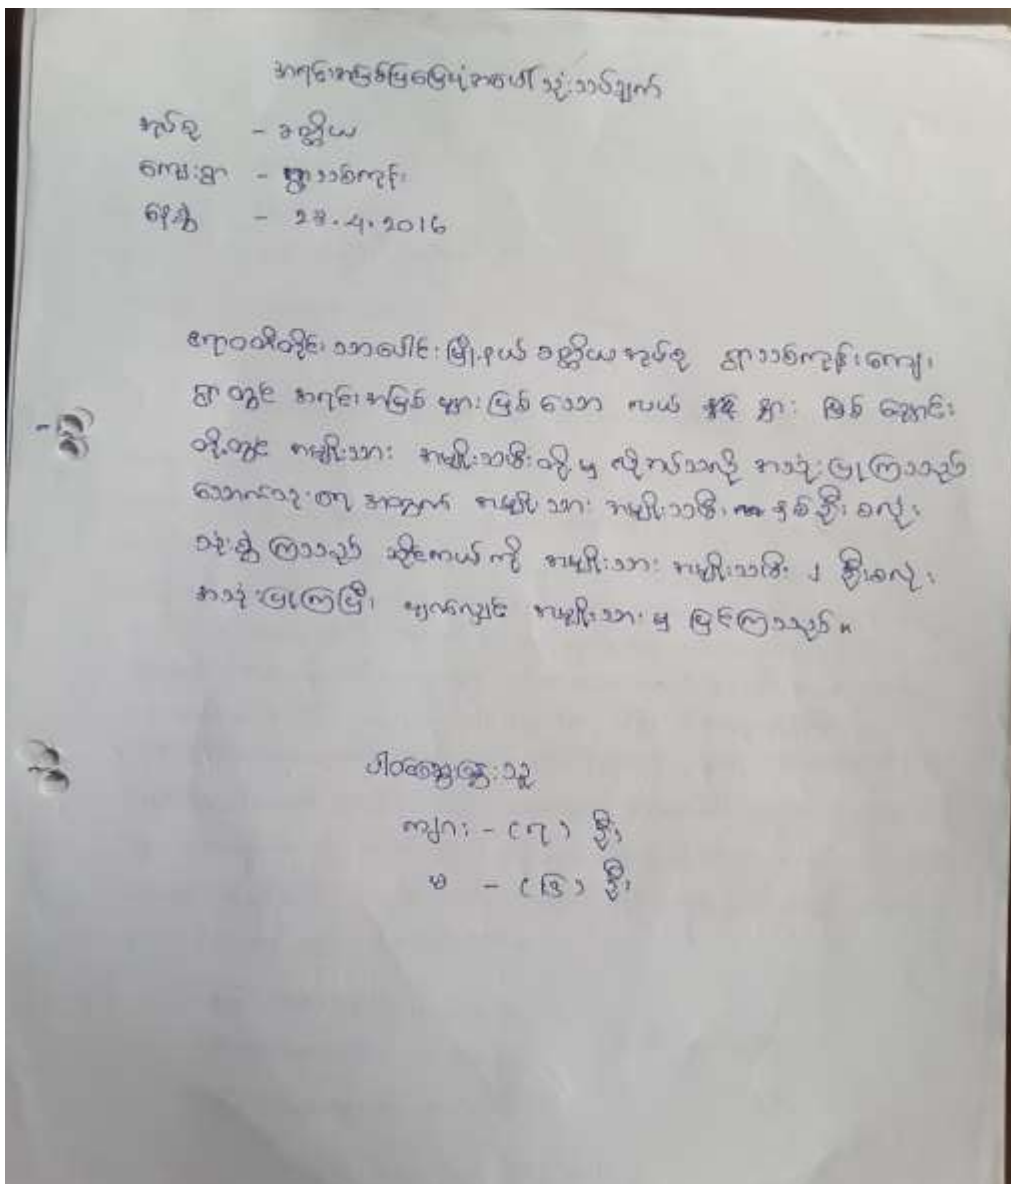 အရင်းအမြစ်ပြမြေပုံအပေါ် သုံးသပ်ချက်
အုပ်စု - ခတ္တိယ
ကျေးရွာ - ရွာသစ်ကုန်း
နေ့စွဲ - 2016
ဧရာဝတီတိုင်း သာပေါင်းမြို့နယ် ခတ္တိယအုပ်စု ရွာသစ်ကုန်းကျေး
ရွာ တွင် အရင်းအမြစ် များ ဖြစ်သော လယ် နွား မြစ် ချောင်း
တို့တွင် အမျိုးသား အမျိုးသမီးတို့ မှ လိုအပ်သလို အသုံးပြုကြသည်
သောက်သုံးရေ အတွက် အမျိုးသား အမျိုးသမီး နှစ်ဦးစလုံး
သုံးစွဲကြသည် ဆိုင်ကယ်ကို အမျိုးသား အမျိုးသမီး ၂ ဦးစလုံး
အသုံးပြုကြပြီး ပျက်လျှင် အမျိုးသား မှ ပြင်ကြသည်။
ပါဝင်ဆွေးနွေးသူ
ကျား - (၇) ဦး
မ - (၆) ဦး